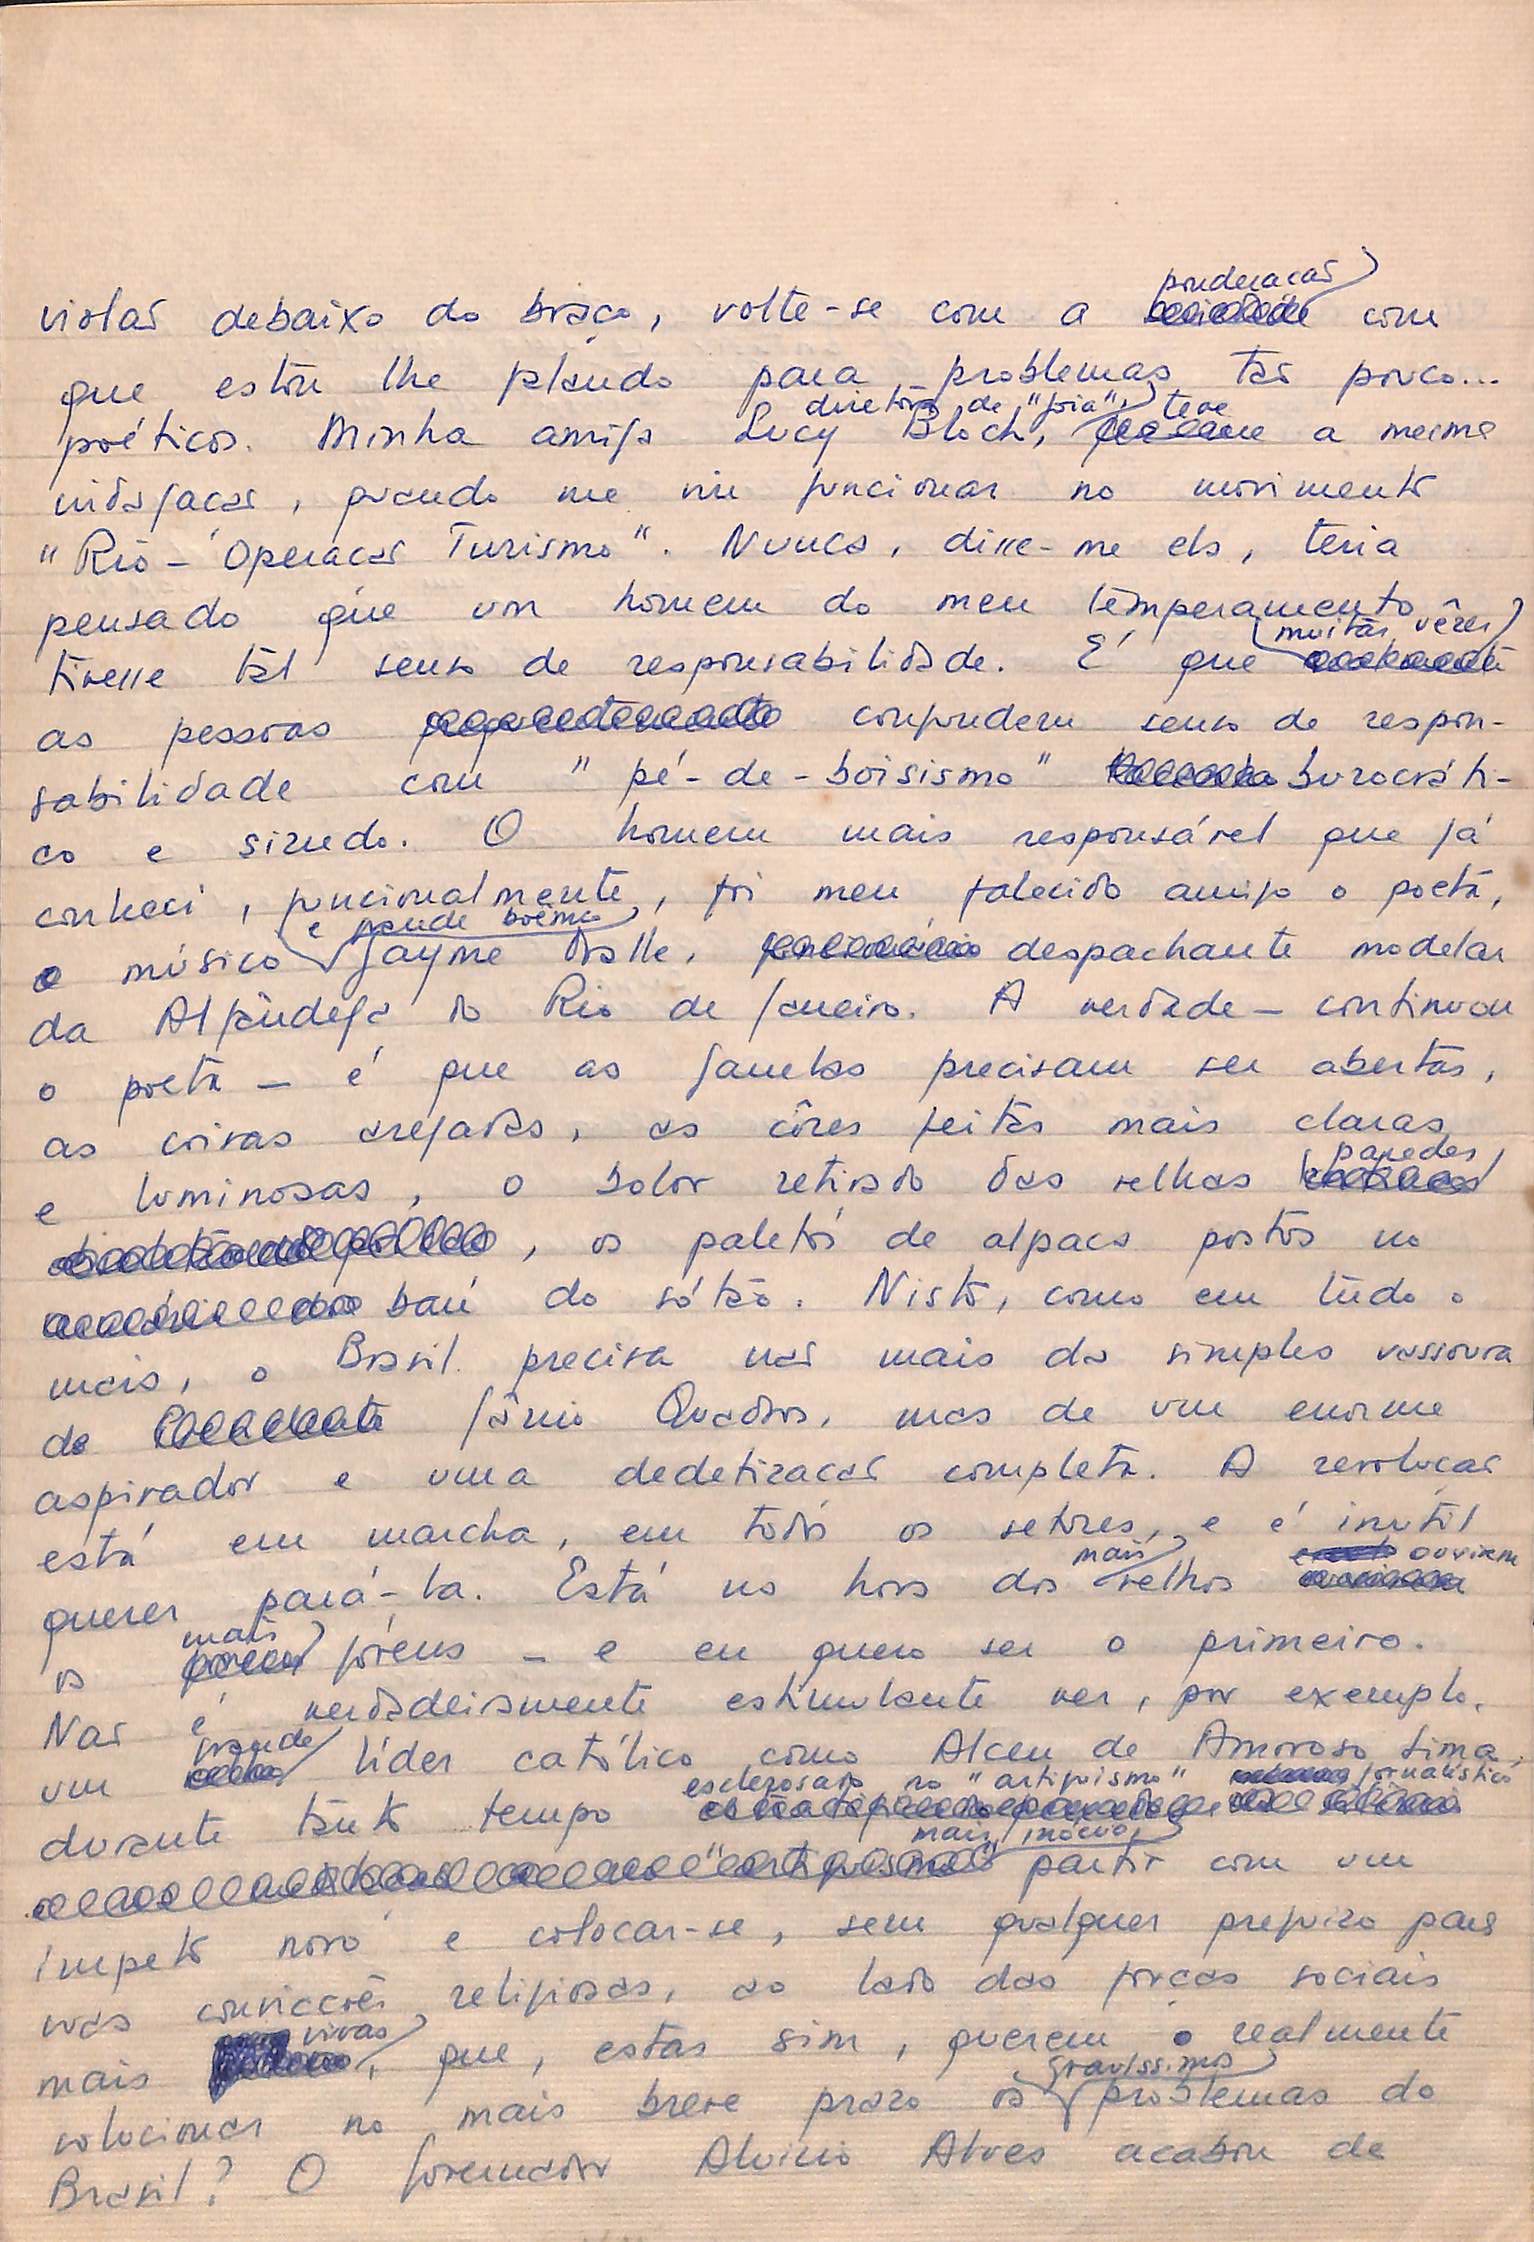 violão debaixo do braço, volte-se com a ponderação com
que estou lhe falando para problemas tão pouco...
poéticos. Minha amiga Lucy Bloch, diretora de "Joia", teve a mesma
indagação, quando me viu funcionar no movimento
"Rio - Operação Turismo". Nunca, disse-me ela, teria
pensado que um homem do meu temperamento
tivesse tal senso de responsabilidade. É que muitas vêzes
as pessoas confundem senso de respon-
sabilidade com "pé-de-boisismo" burocráti-
co e sizudo. O homem mais responsável que já
conheci, funcionalmente, foi meu falecido amigo o poeta,
músico e grande boêmio Jayme Ovalle, despachante modelar
da Alfândega do Rio de Janeiro. A verdade - continuou
o poeta - é que as janelas precisam ser abertas,
as coisas arejadas, as côres feitas mais claras
e luminosas, o bolor retirado das velhas paredes
, os paletós de alpaca postos no
baú do sótão. Nisto, como em tudo o
mais, o Brasil precisa não mais da simples vassoura
de Jânio Quadros, mas de um enorme
aspirador e uma dedetização completa. A revolução
está em marcha, em todos os setores, e é inútil
querer pará-la. Está na hora dos mais velhos ouvirem
os mais jóvens - e eu quero ser o primeiro.
Não é verdadeiramente estimulante ver, por exemplo,
um grande líder católico como Alceu de Amoroso Lima,
durante tanto tempo esclerosado no "artiguismo" jornalístico
mais inócuo, partir com um
ímpeto novo e colocar-se, sem qualquer prejuizo para
suas convicções religiosas, ao lado das forças sociais
mais vivas, que, estas sim, querem realmente
solucionar no mais breve prazo os gravíssimos problemas do
Brasil? O governador Aluisio Alves acabou de